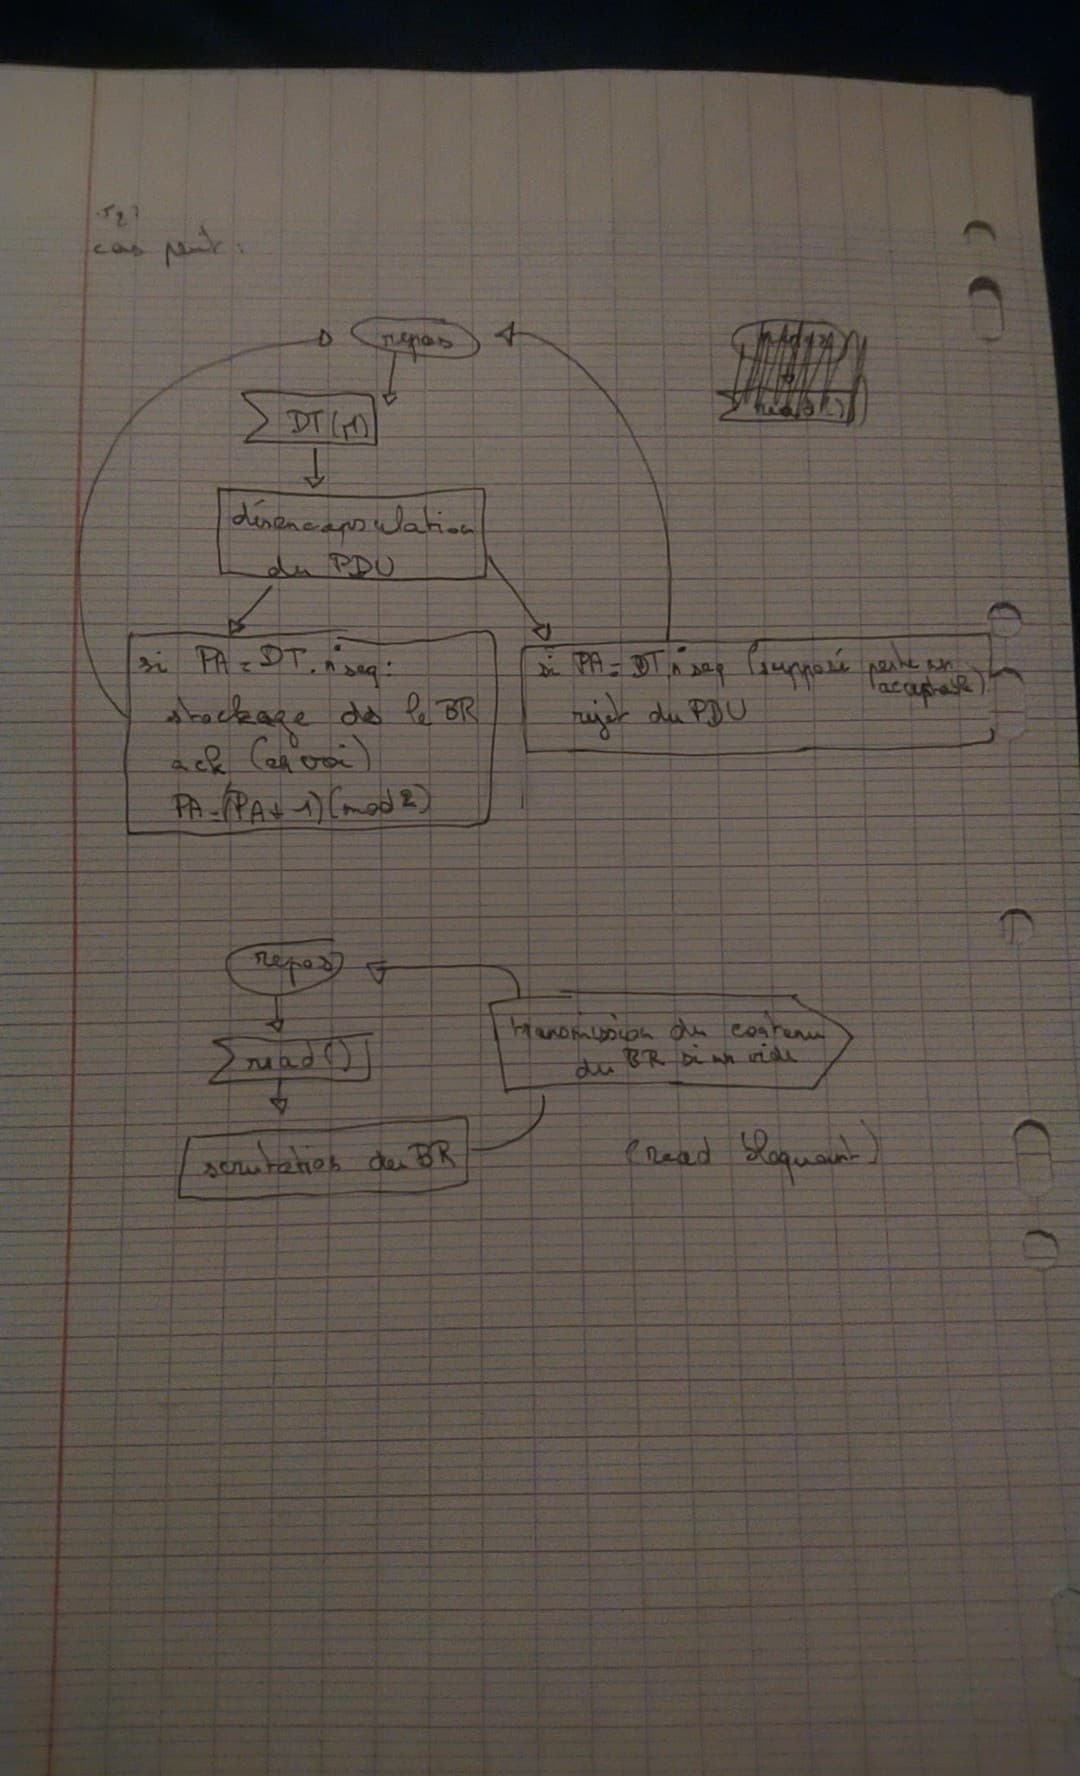 cas
repos
DT(n)
désencapsulation
du PDU
si PA = DT.n°seq :
stockage ds le BR
ack (envoi)
PA = (PA + 1) (mod 2)
si PA = DT.n°seq (supposé perte
acceptable)
rejet du PDU
repos
read()
scrutation du BR
transmission du contenu
du BR si nn vide
(read bloquant)